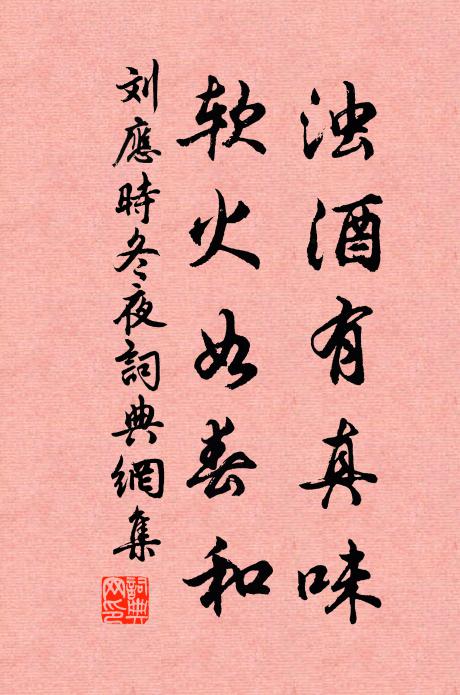 浊酒有真味
软火如春和
刘應時冬夜詞典網集
詞典网印